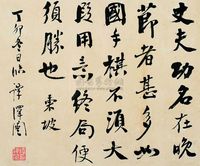 丈夫功名在晚
節者甚多如
國手棋不須大
段用意終局便
須勝也 東坡
丁卯冬日临 譚澤闓